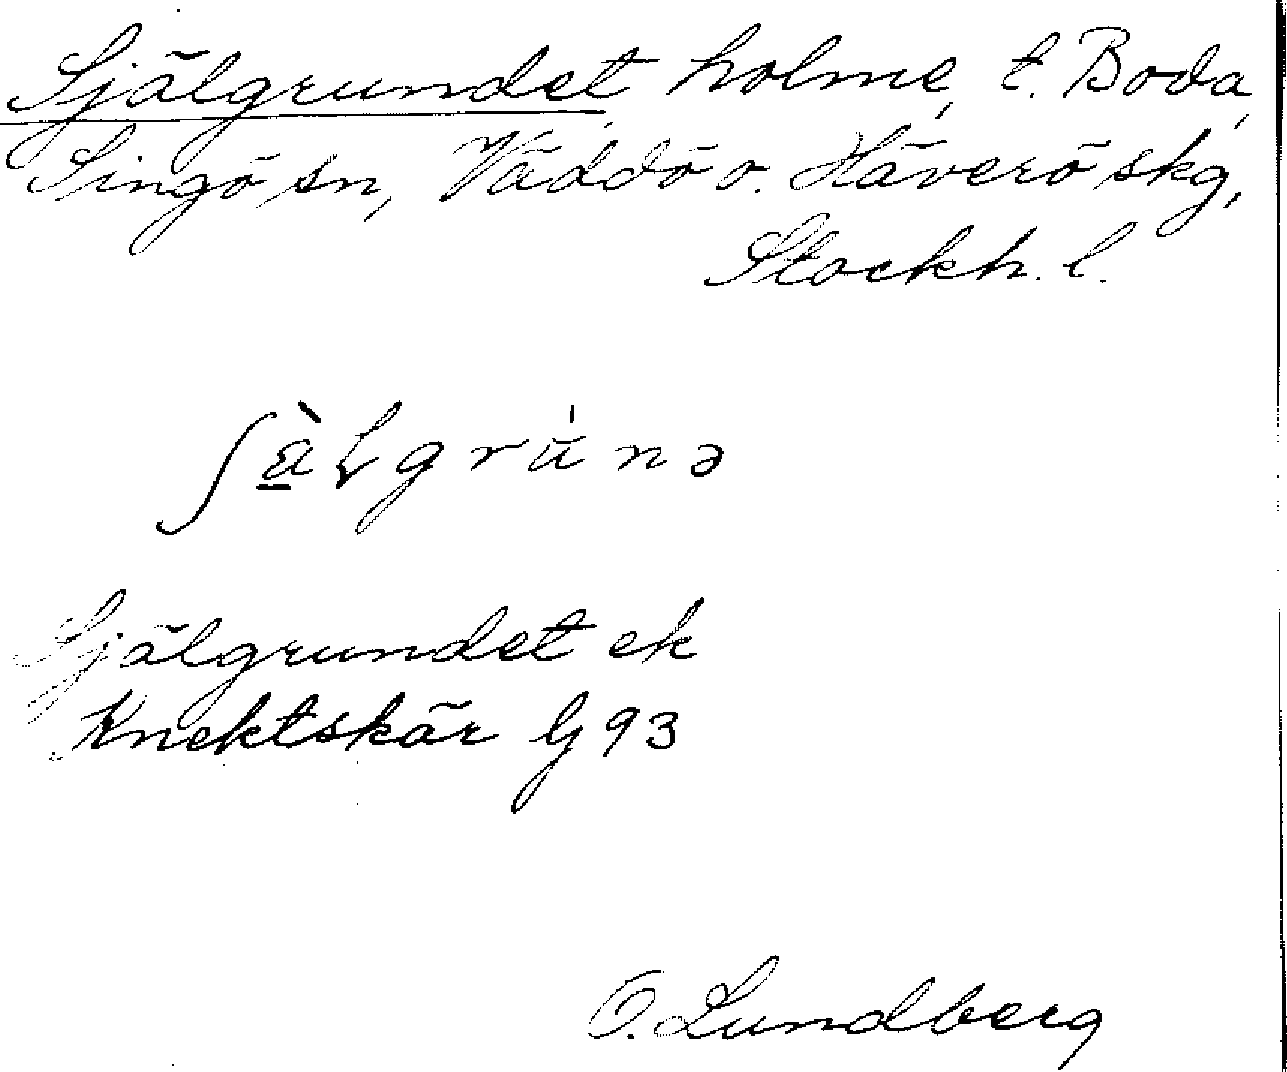 Själgrundet, holme, t. Boda,
Singö sn, Väddö o. Häverö skg,
Stockh. l.
ʃä̀lgrúnə
Själgrundet ek
Knektskär G 93
O. Lundberg